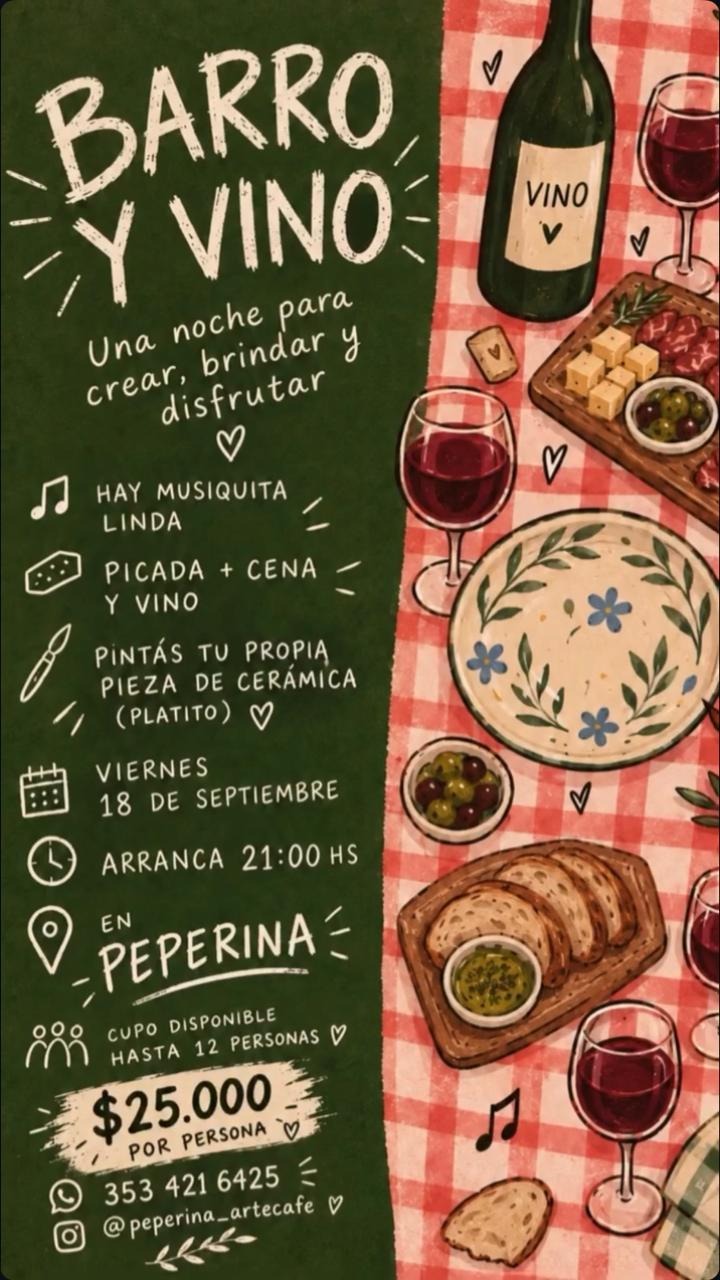 BARRO
Y VINO
Una noche para
crear, brindar y
disfrutar
HAY MUSIQUITA
LINDA
PICADA + CENA
Y VINO
PINTÁS TU PROPIA
PIEZA DE CERÁMICA
(PLATITO)
VIERNES
18 DE SEPTIEMBRE
ARRANCA 21:00 HS
EN
PEPERINA
CUPO DISPONIBLE
HASTA 12 PERSONAS
$25.000
POR PERSONA
353 421 6425
@peperina_artecafe
VINO